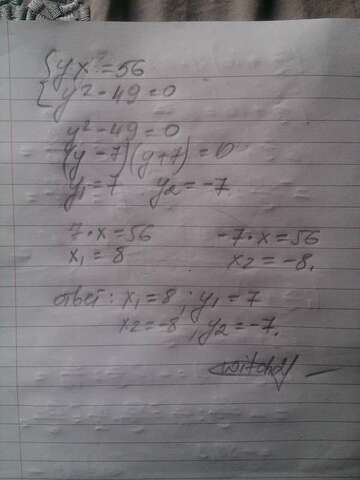 { yx = 56
{ y² - 49 = 0
y² - 49 = 0
(y - 7)(y + 7) = 0
y₁ = 7 y₂ = -7
7 · x = 56 -7 · x = 56
x₁ = 8 x₂ = -8.
ответ: x₁ = 8 ; y₁ = 7
x₂ = -8 , y₂ = -7.